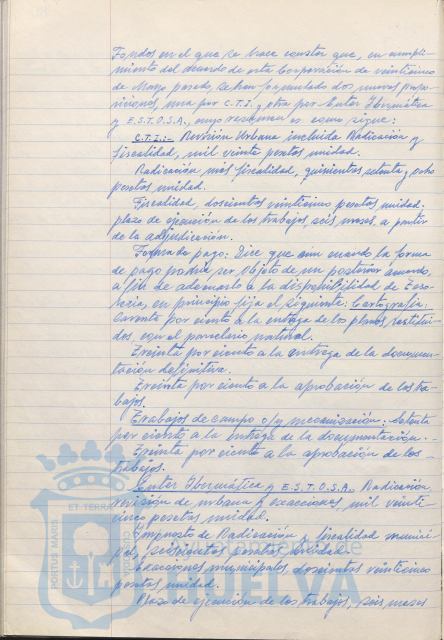 Fondos en el que se hace constar que, en cumpli-
miento del acuerdo de esta Corporación de veinticinco
de Mayo pasado, se han formulado dos nuevas propo-
siciones, una por C.T.I. y otra por Entar Ibermática
y E.S.T.O.S.A., cuyo resumen es como sigue:
C.T.I.:- Revisión Urbana incluida Radicación y
fiscalidad, mil veinte pesetas unidad.
Radicación más fiscalidad, quinientos setenta y ocho
pesetas unidad.
Fiscalidad, doscientos veinticinco pesetas unidad.
plazo de ejecución de los trabajos, seis meses, a partir
de la adjudicación.
Forma de pago: Dice que aún cuando la forma
de pago podría ser objeto de un posterior acuerdo
a fin de adecuarlo a la disponibilidad de Teso-
rería, en principio fija el siguiente: Cartografía:
Cuarenta por ciento a la entrega de los planos restitui-
dos, con el parcelario natural.
Treinta por ciento a la entrega de la documen-
tación definitiva.
Treinta por ciento a la aprobación de los tra-
bajos.
Trabajos de campo c/y mecanización: Setenta
por ciento a la entrega de la documentación.-
Treinta por ciento a la aprobación de los
trabajos.
Entar Ibermática y E.S.T.O.S.A. Radicación
revisión de urbana y exacciones, mil veinti-
cinco pesetas unidad.
Impuesto de Radicación y fiscalidad munici-
pal, seiscientas pesetas unidad.
Exacciones municipales doscientos veinticinco
pesetas unidad.
Plazo de ejecución de los trabajos, seis meses
PORTUS MARIS
ET TERRAE
HUELVA